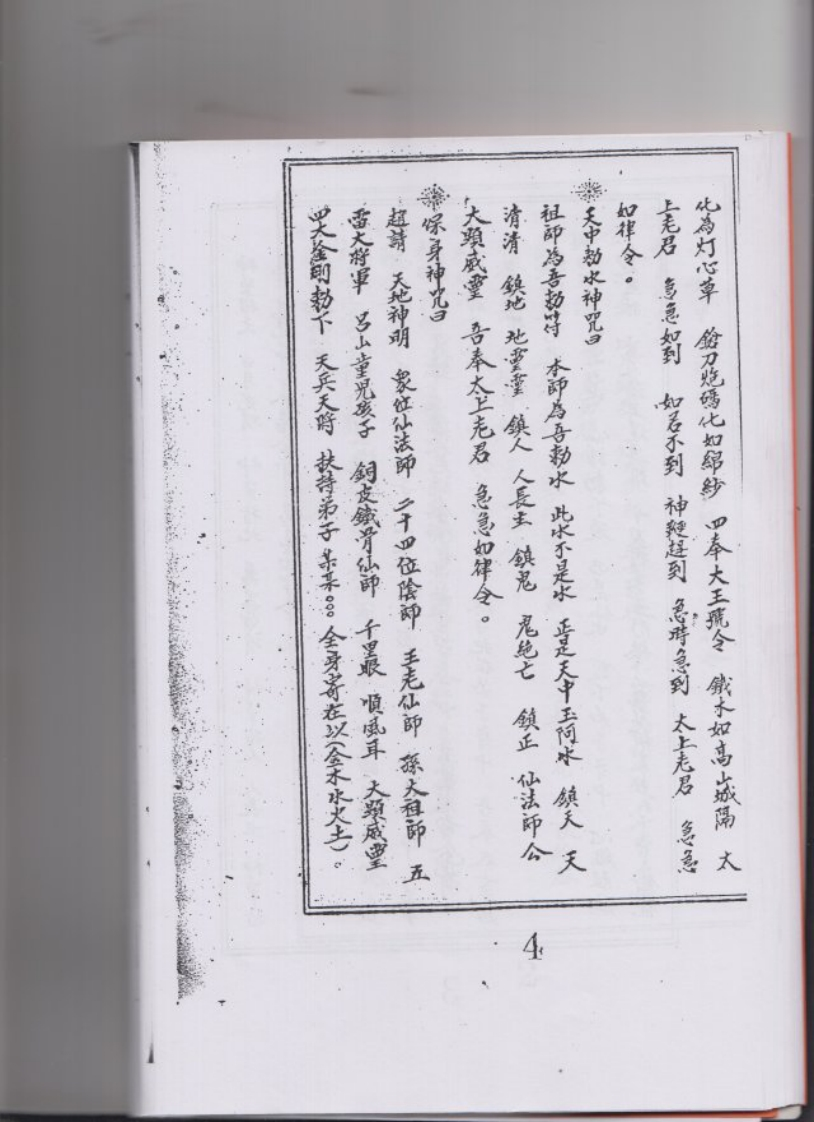 化為灯心草　鎗刀炮碼化如綿紗　四奉大王號令　鐵水如高山城隔　太
上老君　急急如到　如若不到　神鞭趕到　急時急到　太上老君　急急
如律令。
天中勅水神咒曰
祖師為吾勅符　本師為吾勅水　此水不是水　正是天中玉阿水　鎮天　天
清清　鎮地　地靈靈　鎮人　人長生　鎮鬼　鬼絕亡　鎮正　仙法師公
大顯威靈　吾奉太上老君　急急如律令。
保身神咒曰
超請　天地神明　眾位仙法師　二十四位陰師　王老仙師　孫大祖師　五
雷大將軍　呂山童兒孩子　銅皮鐵骨仙師　千里眼　順風耳　大顯威靈
四大金剛勅下　天兵天將　扶持弟子　某某○○　全身寄在以(金木水火土)。
4